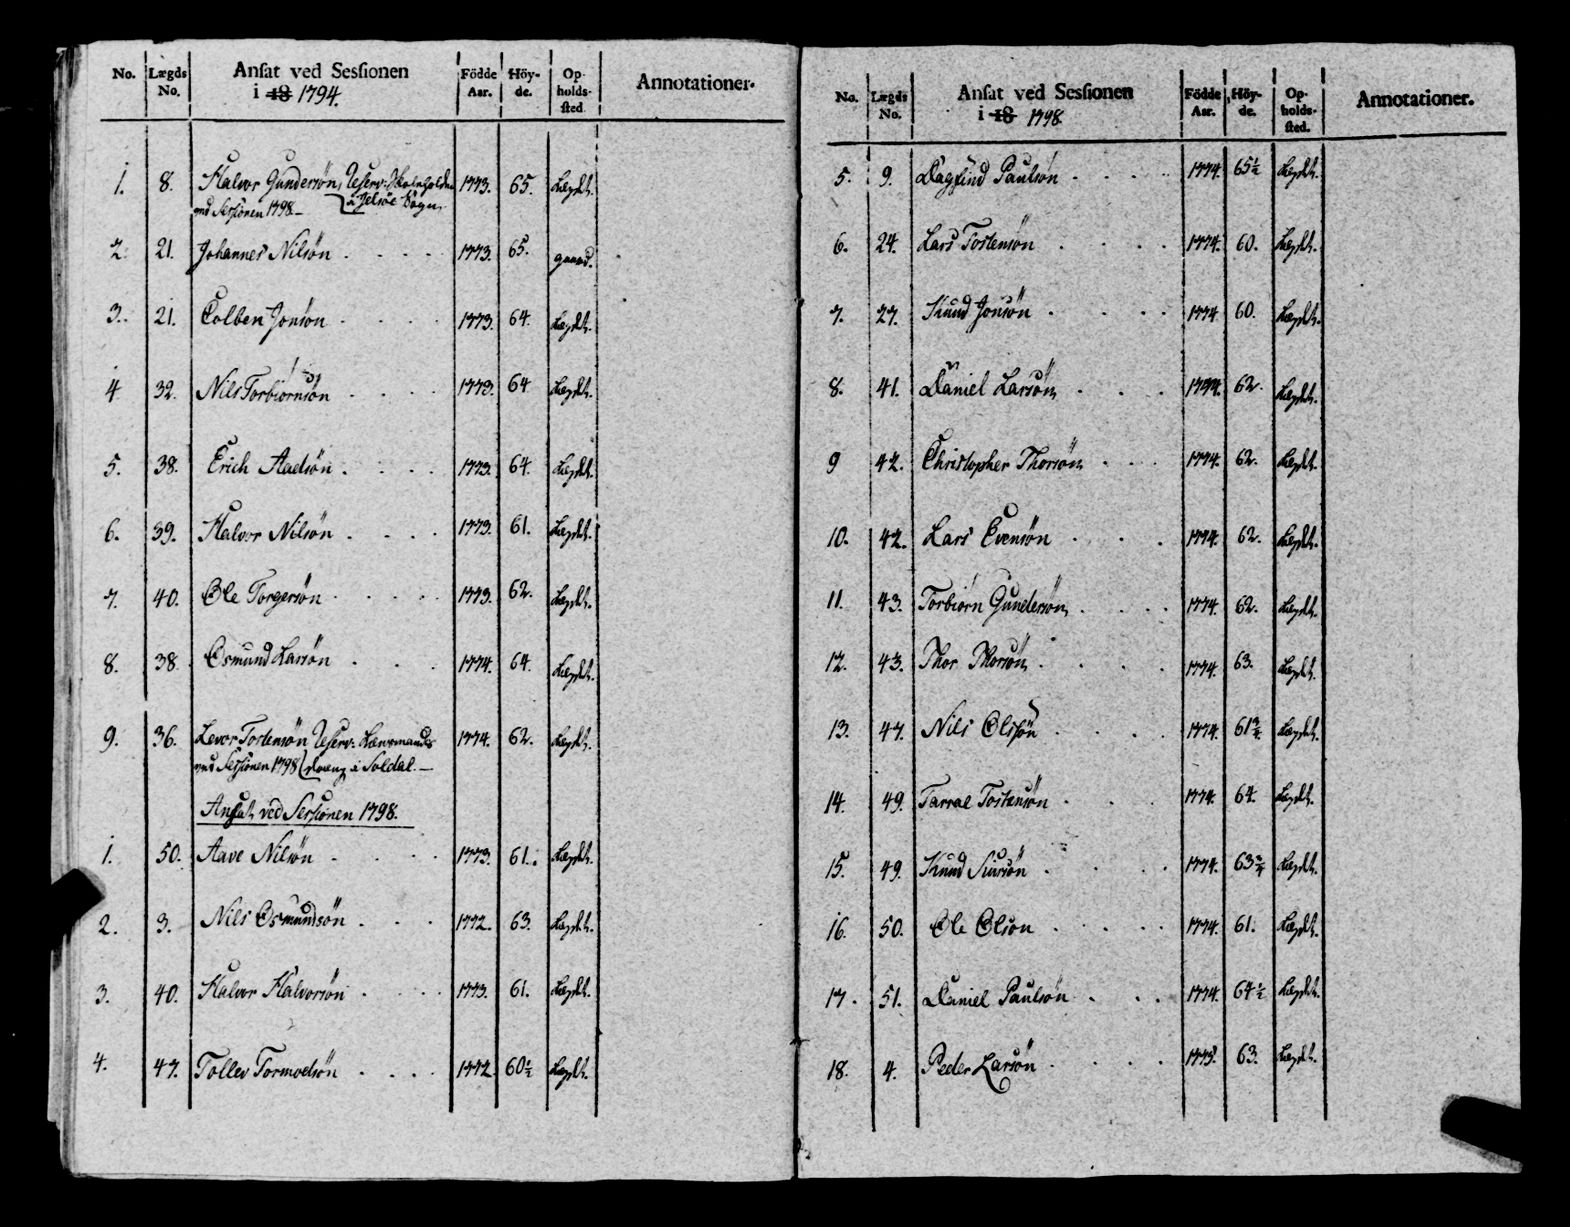 No. Lægds No. Ansat ved Sessionen i 18 1794. Födde Aar. Höyde. Opholdssted Annotationer.
1. 8. Halvor Gundersön, Reserv: Skoleholder 1773. 65. Lægdet.
ved Sessionen 1798 – i Jelsöe Sogn.
2. 21. Johannes Nilsön . . . . . 1773. 65. gaard.
3. 21. Colben Jonsön . . . . 1773. 64. Lægdet.
4 32. Nils Torbiörnsön . . . . 1773. 64 Lægdet.
5. 38. Erich Aadsön . . . . 1773. 64. Lægdet.
6. 39. Halvor Nilsön . . . . 1773. 61. Lægdet.
7. 40. Ole Torgersön . . . . . 1773. 62. Lægdet.
8. 38. Osmund Larsön . . . 1774. 64. Lægdet.
9. 36. Levor Tostensön Reserv: Lænsmands 1774. 62. Lægdet.
ved Sessionen 1798 dreng i Soldal. —
Ansat ved Sessionen 1798.
1. 50. Aave Nilsön . . . . 1773. 61. Lægdet.
2. 3. Nils Osmundsön . . . 1772. 63. Lægdet.
3. 40. Halvor Halvorsön . . . . 1773. 61. Lægdet.
4. 47. Tollev Tormodsön . . . . 1772. 60½ Lægdet.
No. Lægds No. Ansat ved Sessionen i 18 1798. Födde Aar. Höyde. Opholdssted. Annotationer.
5. 9. Dagfind Paulsön . . . . 1774. 65½ Lægdet.
6. 24. Lars Tostensön . . . . 1774. 60. Lægdet.
7. 27. Knud Jonsön . . . . 1774 60. Lægdet.
8. 41. Daniel Larsön . . . 1774. 62. Lægdet.
9 42. Christopher Thorsön . . . 1774. 62. Lægdet.
10. 42. Lars Evensön . . . 1774. 62. Lægdet.
11. 43. Torbiörn Gundersön . . . . 1774. 62. Lægdet.
12. 43. Thor Thorsön . . . . 1774. 63. Lægdet.
13. 47. Nils Olsön . . . . 1774. 61¾ Lægdet.
14. 49. Tarral Tostensön . . . 1774. 64. Lægdet.
15. 49. Knud Siursön . . . . 1774. 63¾ Lægdet.
16. 50. Ole Olson . . . . . 1774. 61. Lægdet.
17. 51. Daniel Paulsön . . . 1774. 64½ Lægdet.
18. 4. Peder Larsön . . . . 1775. 63. Lægdet.